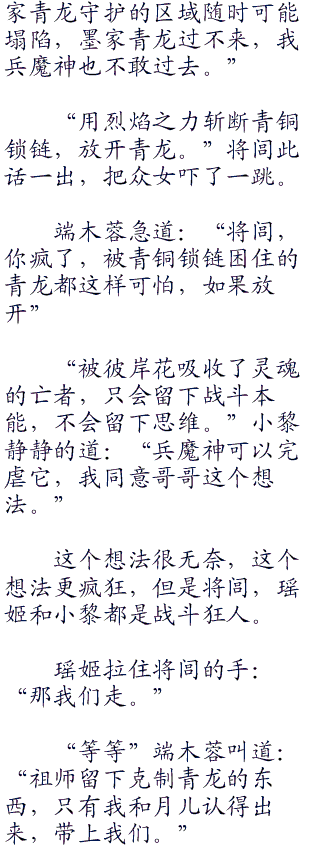 家青龙守护的区域随时可能
塌陷，墨家青龙过不来，我
兵魔神也不敢过去。”
“用烈焰之力斩断青铜
锁链，放开青龙。”将闾此
话一出，把众女吓了一跳。
端木蓉急道：“将闾，
你疯了，被青铜锁链困住的
青龙都这样可怕，如果放
开”
“被彼岸花吸收了灵魂
的亡者，只会留下战斗本
能，不会留下思维。”小黎
静静的道：“兵魔神可以完
虐它，我同意哥哥这个想
法。”
这个想法很无奈，这个
想法更疯狂，但是将闾，瑶
姬和小黎都是战斗狂人。
瑶姬拉住将闾的手：
“那我们走。”
“等等”端木蓉叫道：
“祖师留下克制青龙的东
西，只有我和月儿认得出
来，带上我们。”